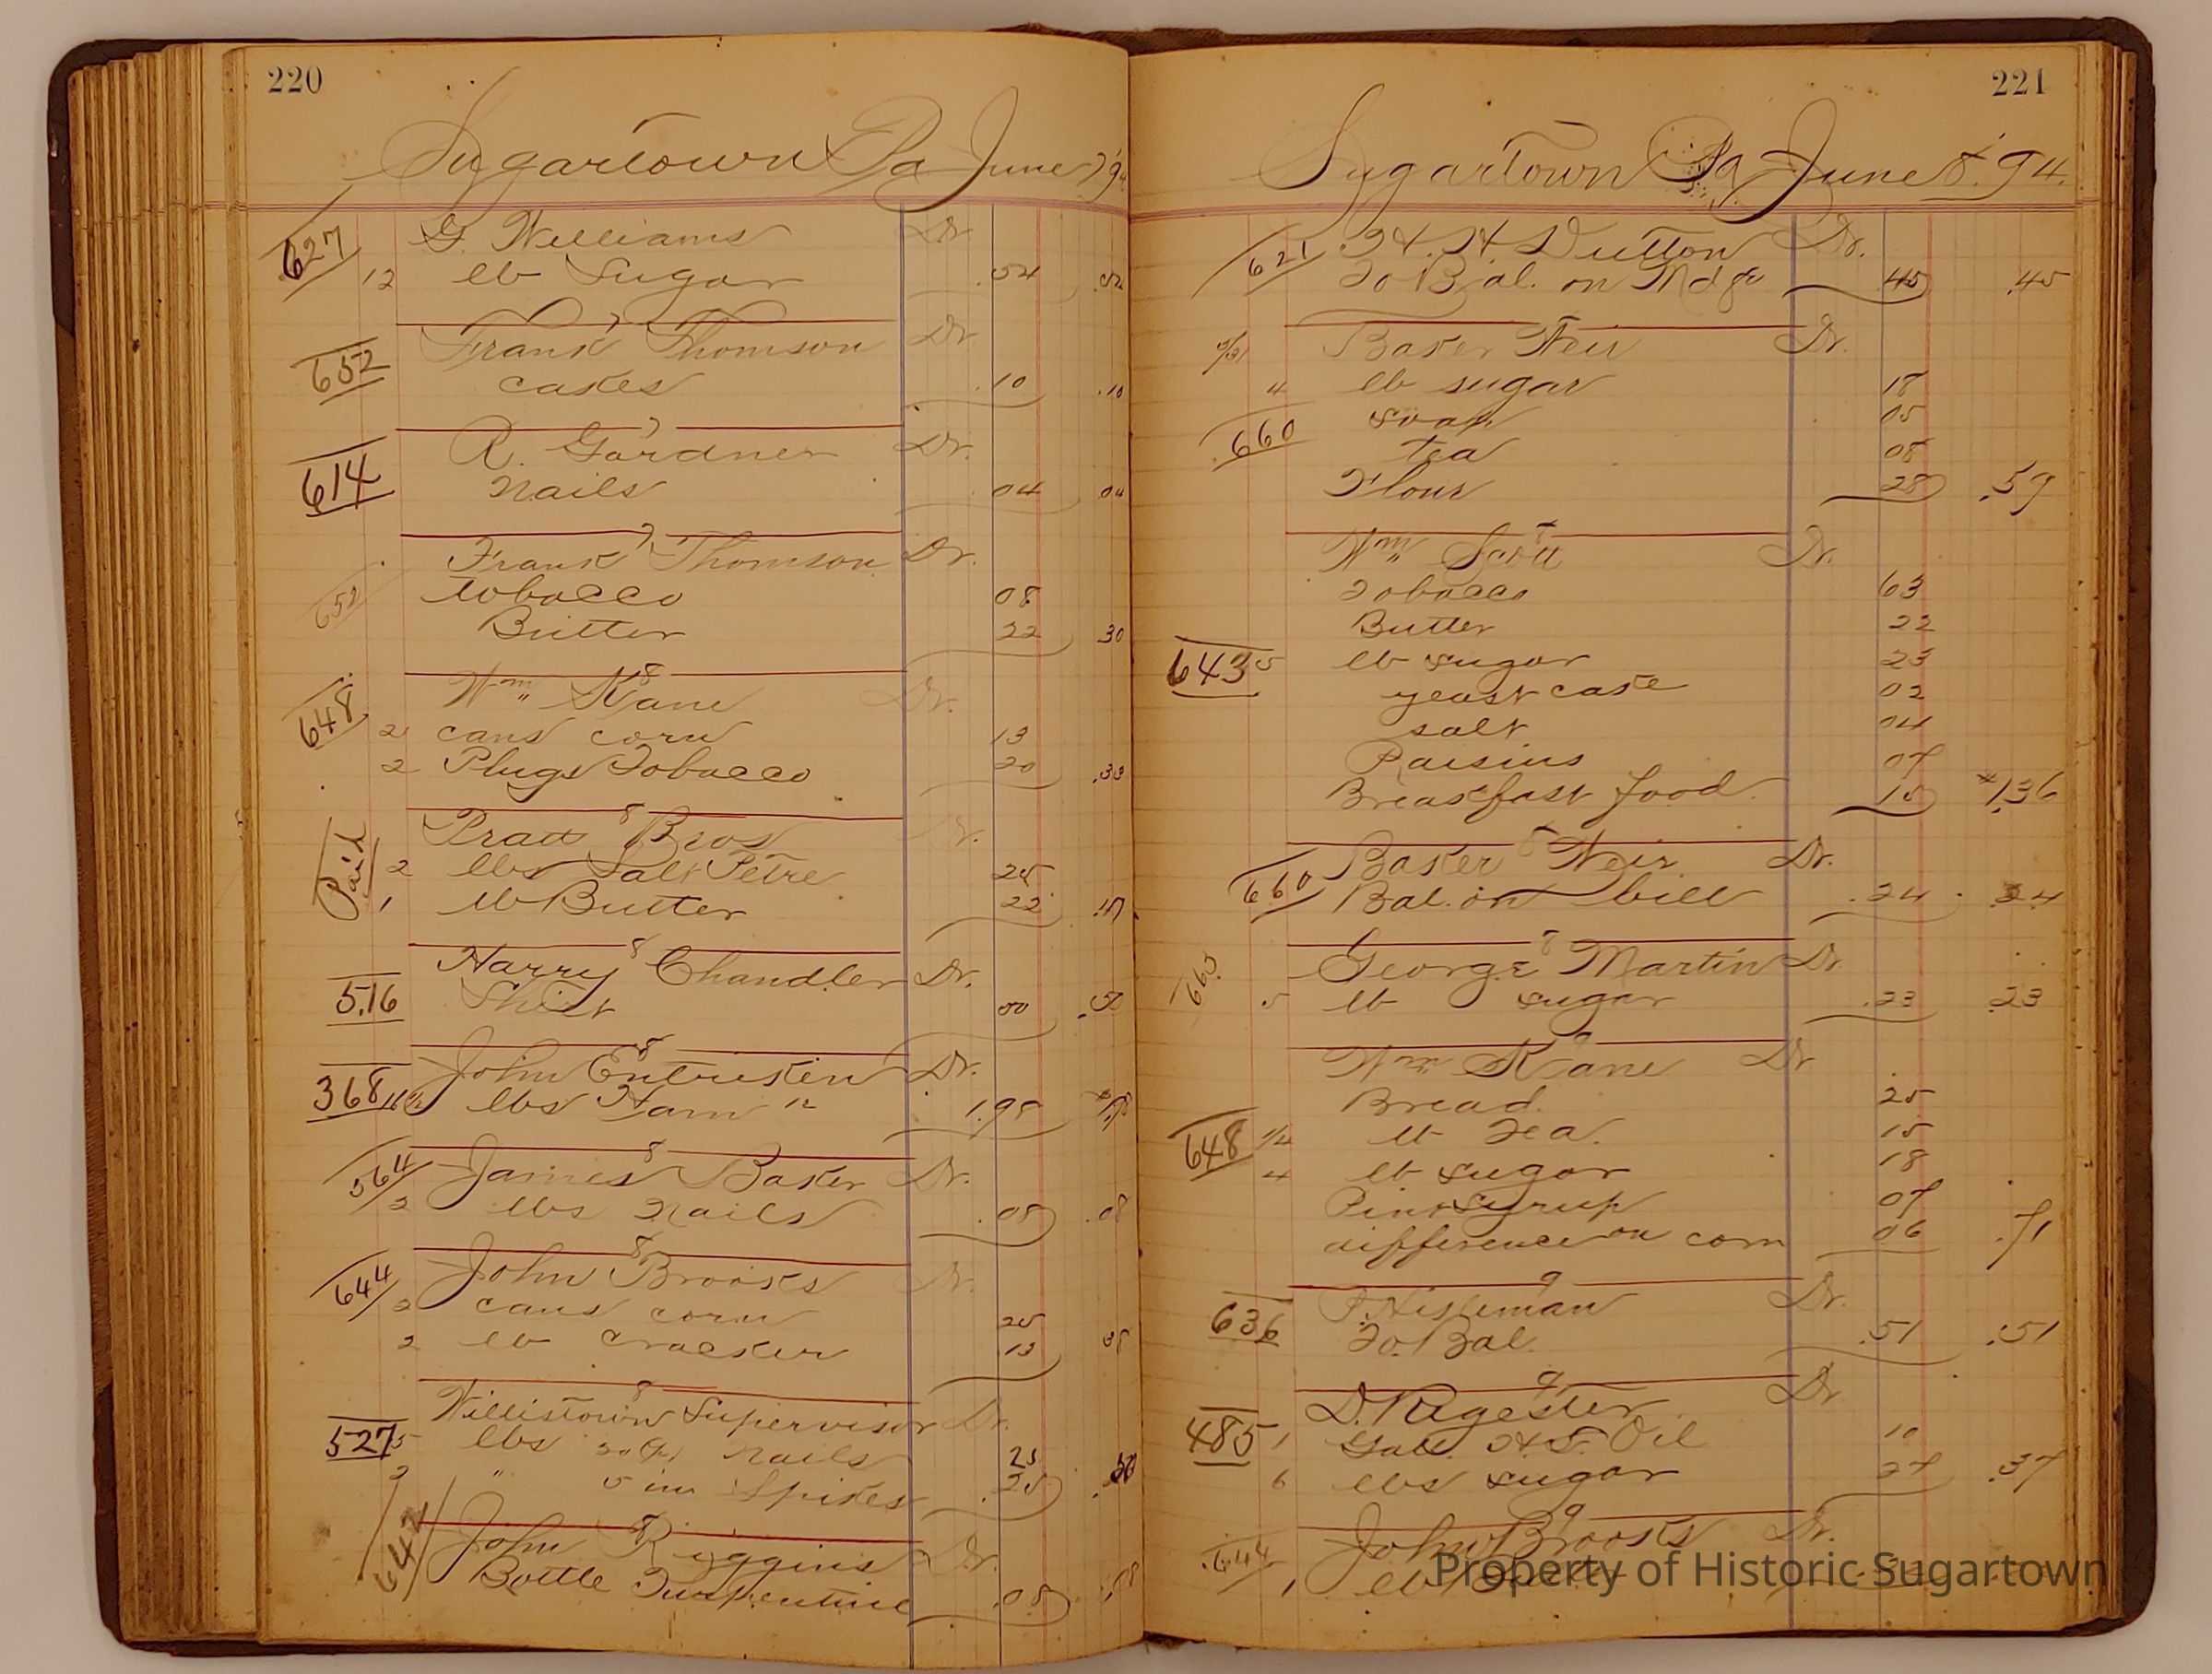 220
Sugartown Pa June 7 94
627 G. Williams Dr.
12 lb Sugar .54 .54
7
652 Frank Thomson Dr.
cakes .10 .10
7
614 R. Gardner Dr.
Nails 04 04
7
652 Frank Thomson Dr.
tobacco 08
Butter 22 30
8
648 Wm Kane Dr.
2 cans corn 13
2 Plugs Tobacco 20 .33
8
Paid Pratt Bros Dr.
2 lbs Salt Petre 25
1 lb Butter 22 .47
8
516 Harry Chandler Dr.
Shirt 50 .50
8
368 John Entrikin Dr.
lbs Ham 12 1.98
8
564 James Baker Dr.
2 lbs Nails .08 .08
8
644 John Brooks Dr.
2 cans corn 25
2 lb cracker 13 38
8
527 Willistown Supervisor Dr.
5 lbs nails 25
2 " 5 in Spikes .25 .50
8
642 John Riggins Dr.
Bottle Turpentine .08 .08
221
Sugartown Pa June 8. 94.
621 H. H. Dutton Dr.
To Bal. on Mdse 45 .45
Baker Weir Dr.
4 lb sugar 18
660 soap 05
tea 08
Flour 28 .59
8
Wm Scott Dr.
Tobacco 63
Butter 22
643 5 lb sugar 23
yeast cake 02
salt 04
Raisins 07
Breakfast food 15 1.36
8
660 Baker Weir Dr.
Bal. on bill .24 .24
8
663 George Martin Dr
5 lb sugar .23 .23
9
Wm Kane Dr
Bread. 25
648 1/4 lb Tea. 15
4 lb sugar 18
Pint Syrup 07
difference on corn 06 .71
9
636 Dr.
To. Bal. .51 .51
9
485 D. Rigester Dr
1 Gall. H.L. Oil 10
6 lbs sugar 27 .37
9
644 John Brooks Dr.
1 lb
Property of Historic Sugartown